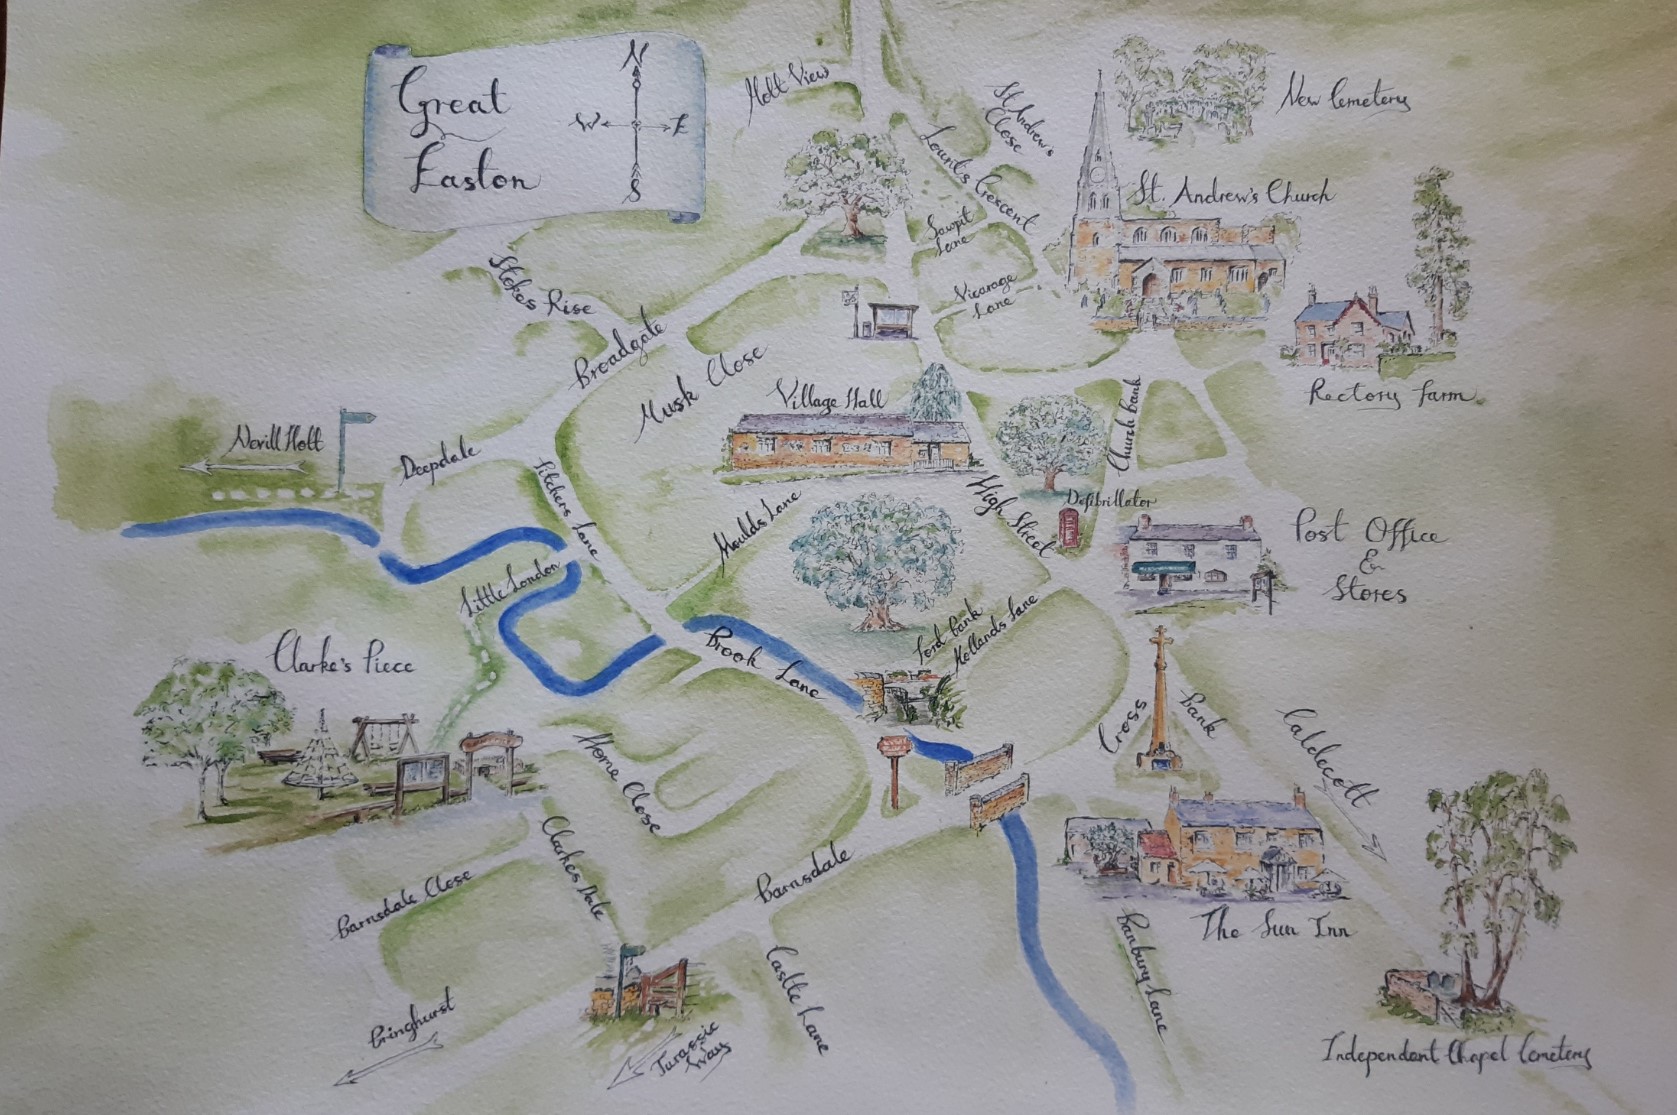 Great
Easton
N
W
E
S
Holt View
St. Andrew's
Close
Lount's Crescent
New Cemetery
St. Andrew's Church
Sawpit
Lane
Vicarage
Lane
Stokes Rise
Broadgate
Musk Close
Rectory Farm
Village Hall
Church Bank
Nevill Holt
Deepdale
Pitchers Lane
Moulds Lane
High Street
Defibrillator
Post Office
&
Stores
Little London
Clarke's Piece
Brook Lane
Ford Bank
Hollands Lane
Cross
Bank
Caldecott
Home Close
Clarkes Dale
Barnsdale
Barnsdale Close
The Sun Inn
Banbury Lane
Castle Lane
Bringhurst
Jurassic
Way
Independent Chapel Cemetery